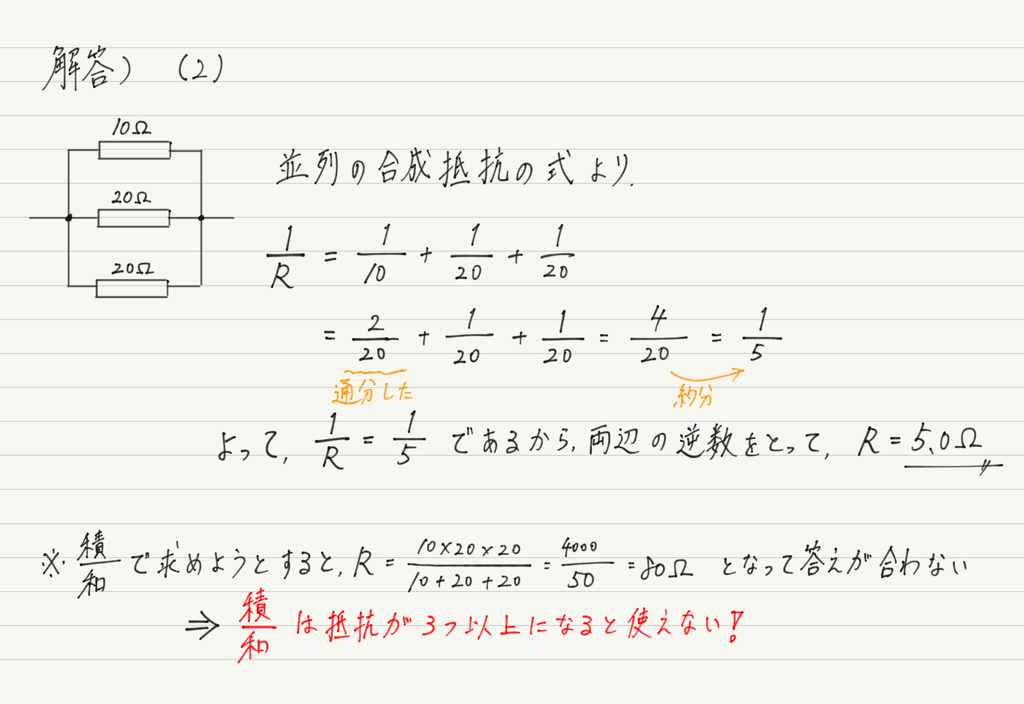 解答） (2)
10Ω
20Ω
20Ω
並列の合成抵抗の式より,
1/R = 1/10 + 1/20 + 1/20
= 2/20 + 1/20 + 1/20 = 4/20 = 1/5
通分した 約分
よって, 1/R = 1/5 であるから, 両辺の逆数をとって, R = 5.0Ω
※ 積/和 で求めようとすると, R = 10×20×20/10+20+20 = 4000/50 = 80Ω となって答えが合わない
⇒ 積/和 は抵抗が3つ以上になると使えない!